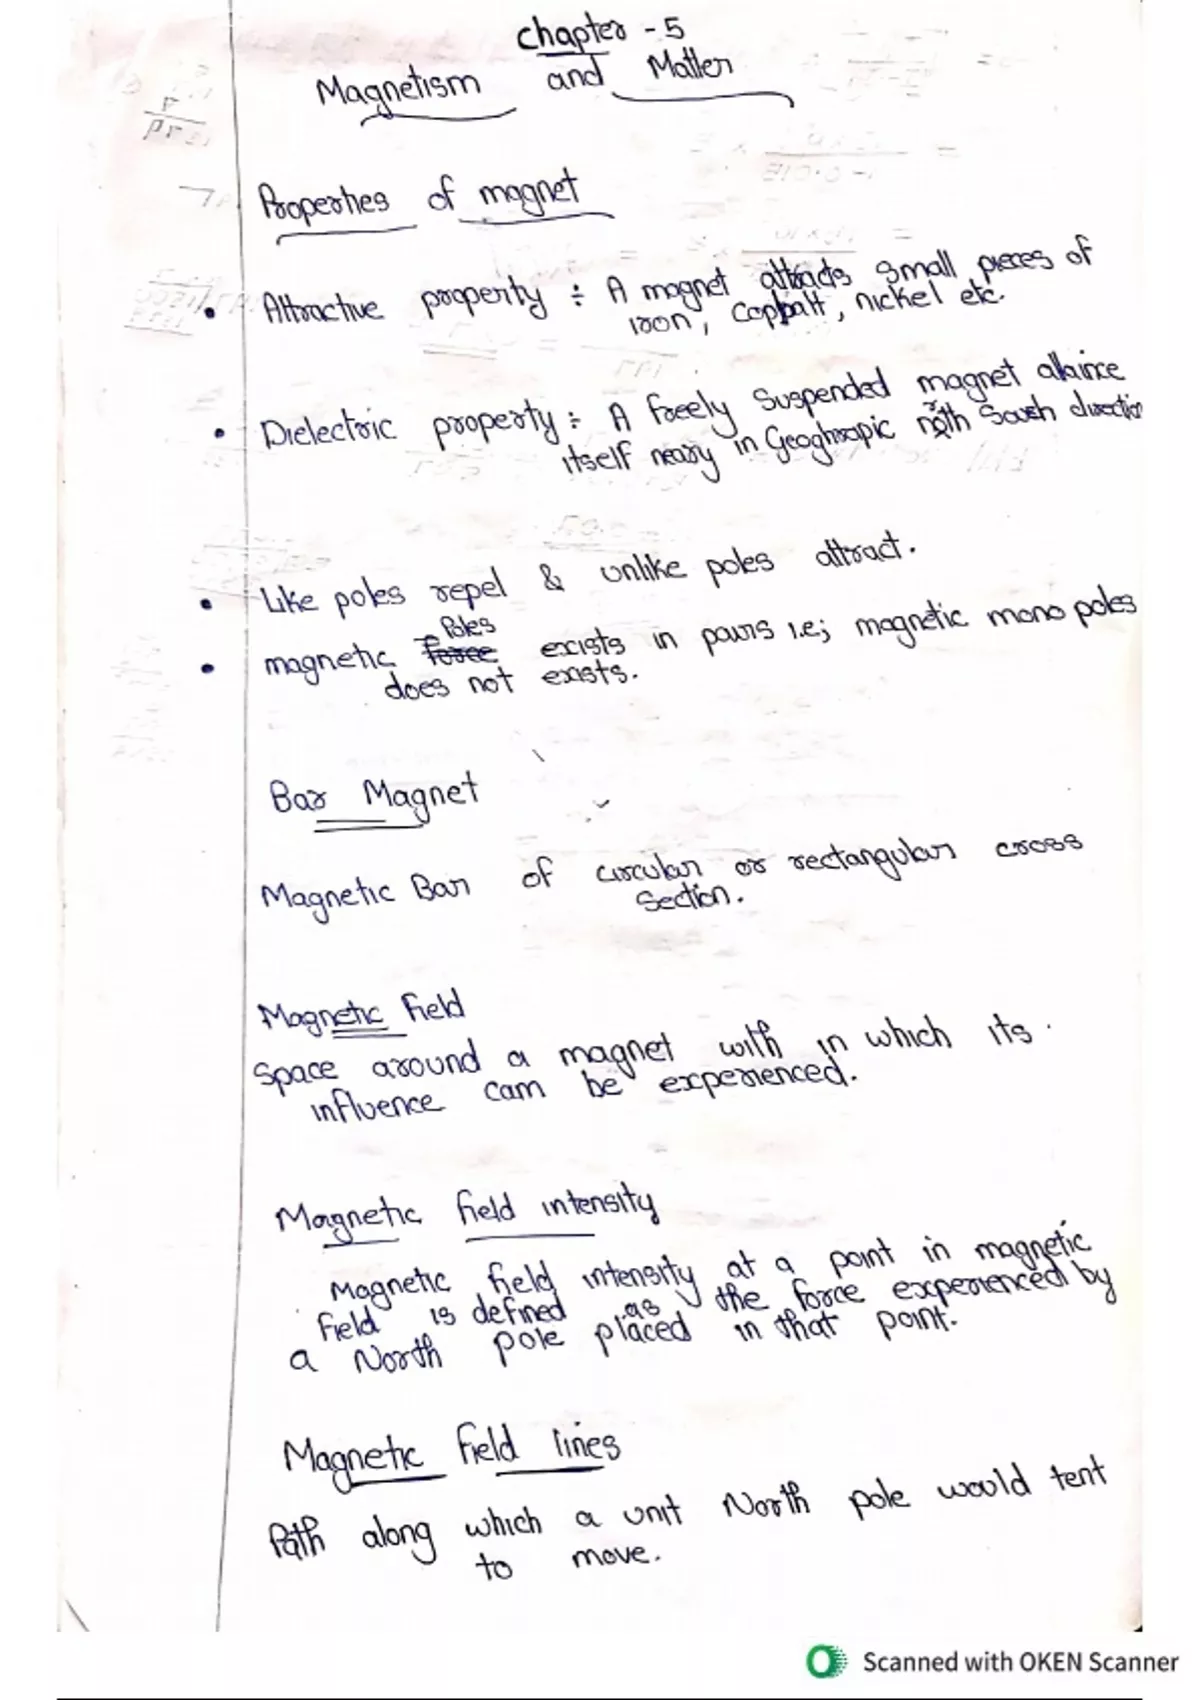 Chapter - 5
Magnetism and Matter
Properties of magnet
• Attractive property ÷ A magnet attracts small pieces of
iron, Cobalt, nickel etc.
• Dielectric property ÷ A freely suspended magnet allaince
itself neary in Geoghrapic north South direction
• Like poles repel & unlike poles attract.
Poles
• magnetic force exists in pairs i.e; magnetic mono poles
does not exists.
Bar Magnet
Magnetic Bar of circular or rectangular cross
Section.
Magnetic field
Space around a magnet with in which its
influence can be experienced.
Magnetic field intensity
Magnetic field intensity at a point in magnetic
field is defined as the force experienced by
a North pole placed in that point.
Magnetic field lines
Path along which a unit North pole would tent
to move.
Scanned with OKEN Scanner